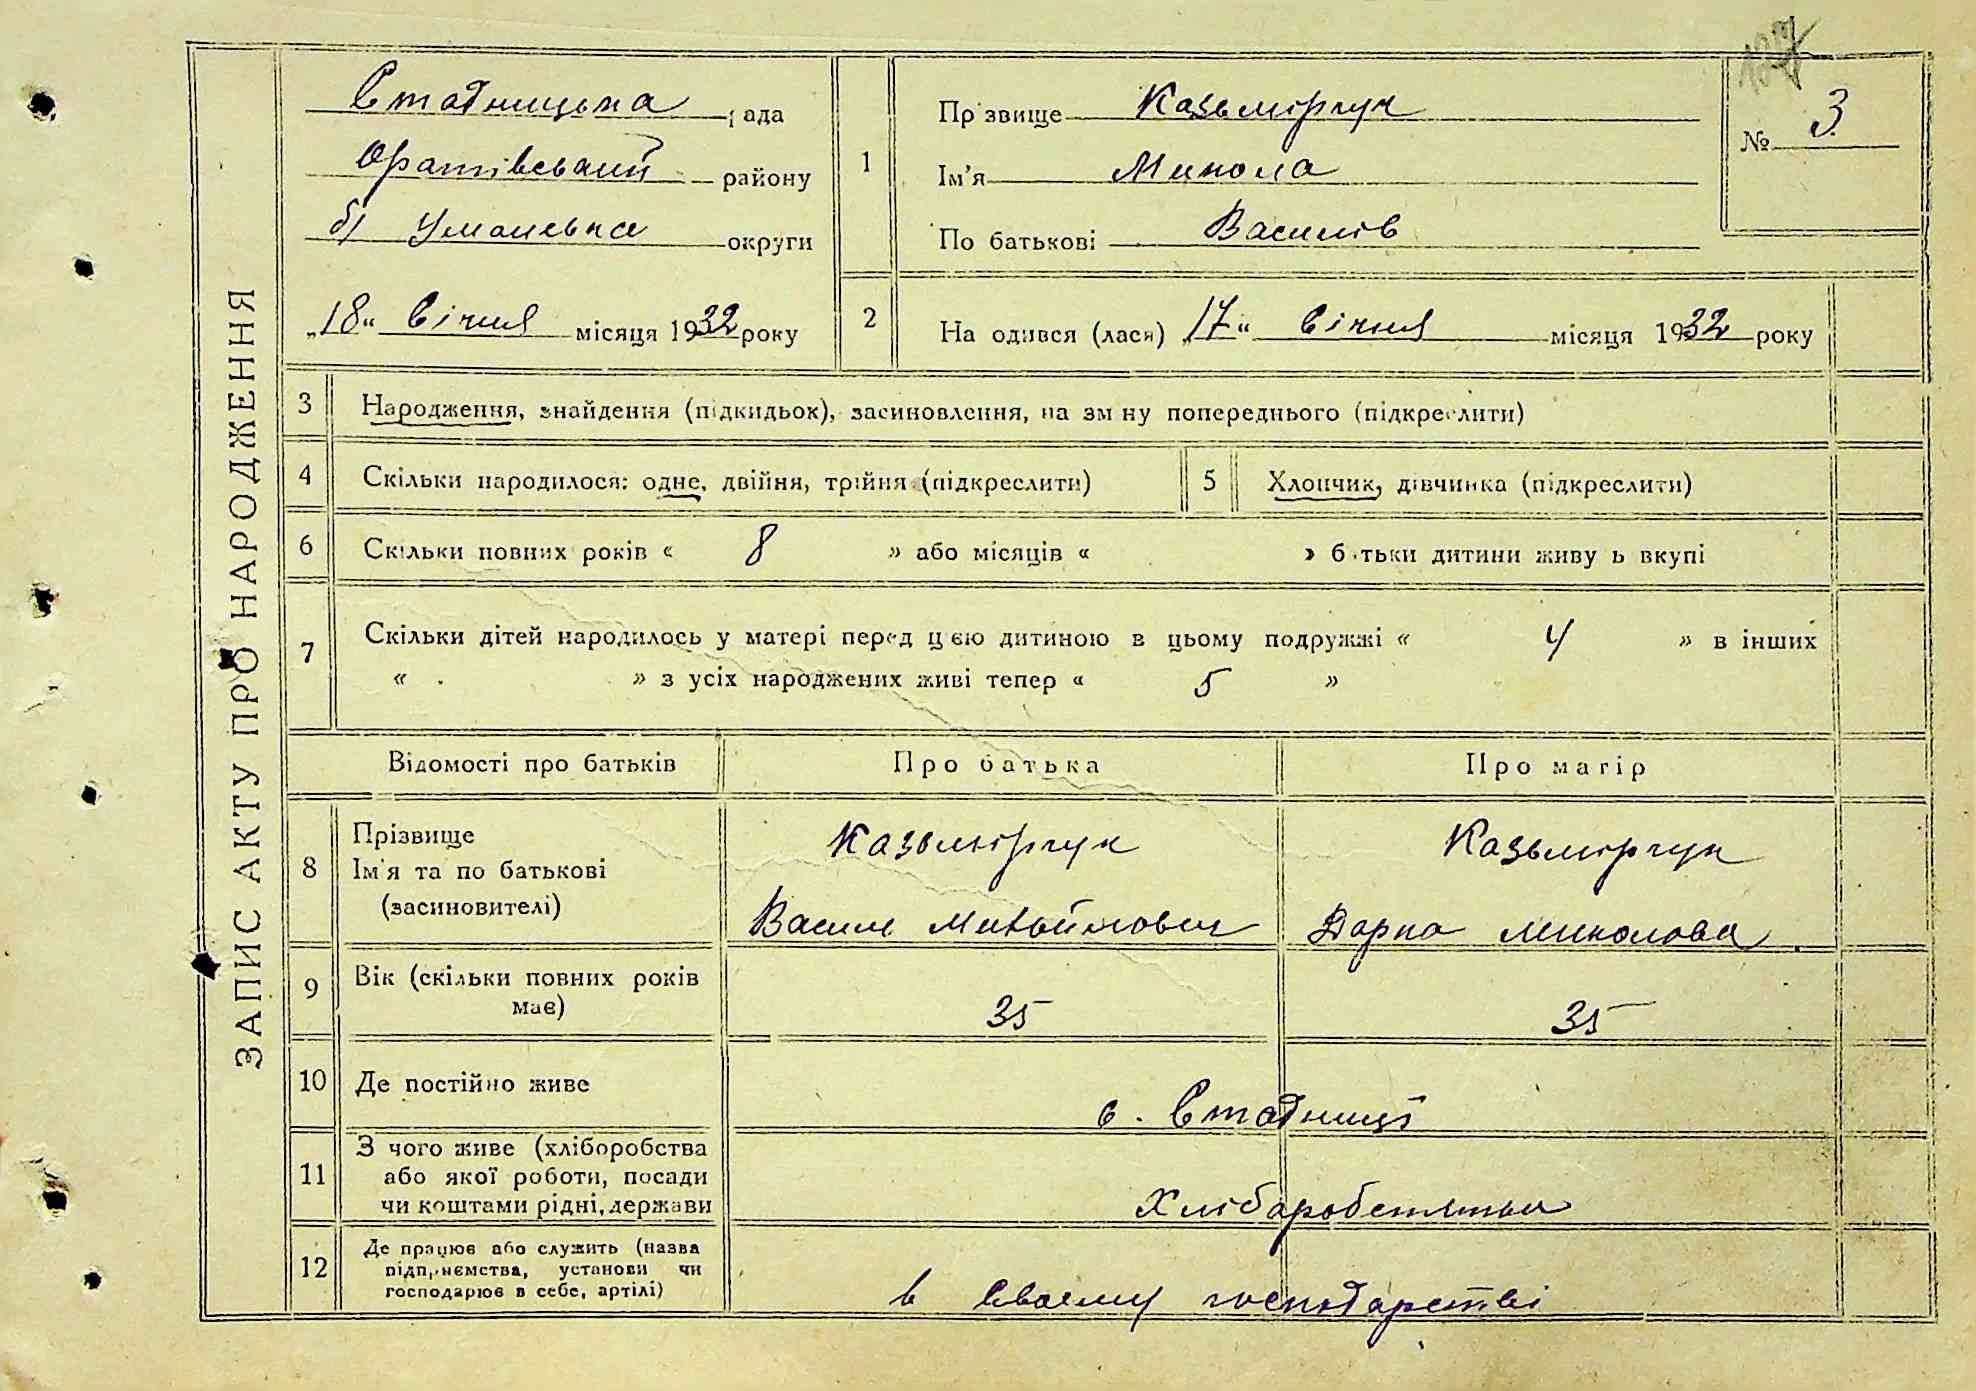 ЗАПИС АКТУ ПРО НАРОДЖЕННЯ
Стадницька рада
Оратівський району
б/ Уманська округи
„18“ Січня місяця 1932 року
1
Прізвище Казьмірчук
Ім'я Микола
По батькові Василів
№ 3
2
Народився (лася) „17“ Січня місяця 1932 року
3 Народження, знайдення (підкидьок), засиновлення, на зміну попереднього (підкреслити)
4 Скільки народилося: одне, двійня, трійня (підкреслити)
5 Хлопчик, дівчинка (підкреслити)
6 Скільки повних років « 8 » або місяців « » батьки дитини живуть вкупі
7 Скільки дітей народилось у матері перед цією дитиною в цьому подружжі « 4 » в інших
« » з усіх народжених живі тепер « 5 »
Відомості про батьків Про батька Про матір
8 Прізвище
Ім'я та по батькові
(засиновителі)
Казьмірчук
Василь Михайлович
Казьмірчук
Дарка Миколова
9 Вік (скільки повних років
має)
35 35
10 Де постійно живе
с. Стадниці
11 З чого живе (хліборобства
або якої роботи, посади
чи коштами рідні, держави
Хліборобством
12 Де працює або служить (назва
підприємства, установи чи
господарює в себе, артілі)
в своєму господарстві